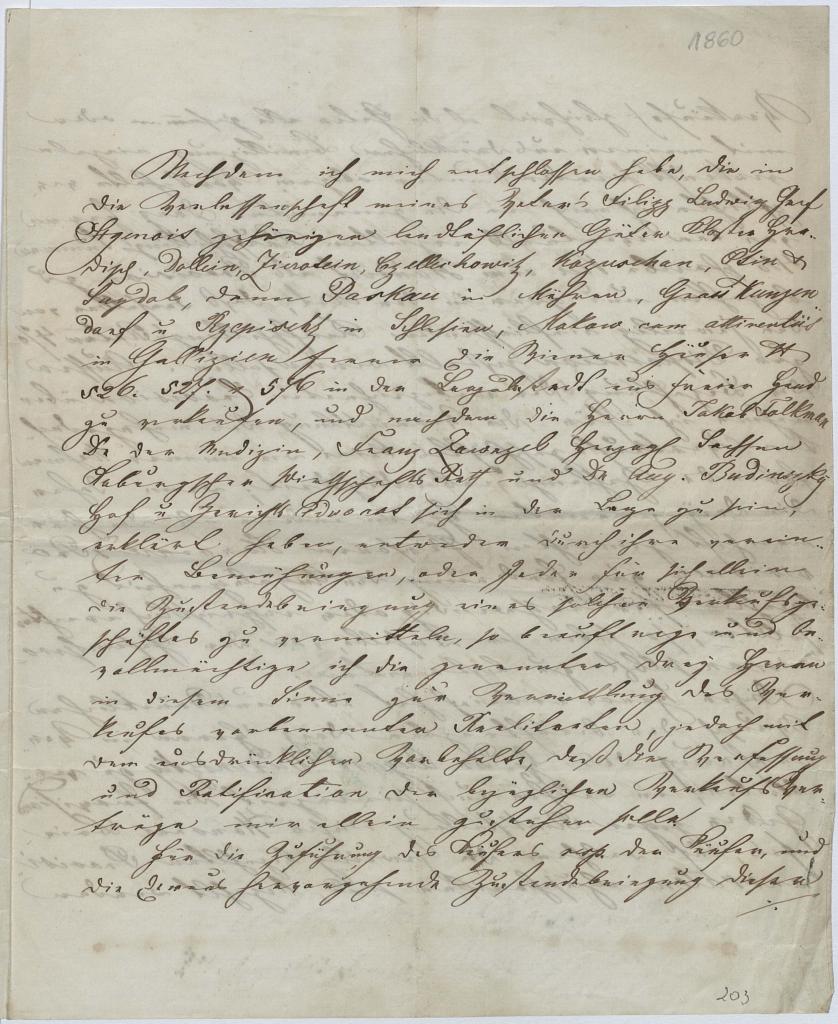 1860
Nachdem ich mich entschlossen habe, die in
die Verlassenschaft meines Vaters Filipp Ludwig Graf
Saint Genois gehörigen landtäflichen Güter Kloster Hra-
disch, Dollein, Zierotein, Czellechowitz, Kozuschan, Ptin &
dann Paskau in Mähren, Gross Kunzen
dorf u Rzepischt in Schlesien, Makow cum attinentiis
in Gallizien ferner die Wiener Häuser N
526. 527. & 576 in der Leopoldstadt aus freier Hand
zu verkaufen, und nachdem die Herrn Jakob Folkman
Dr der Medizin, Franz Herzogl Sachsen
Koburgscher Wirthschafts Rath und Dr Aug. Budinszky
Hof u Gerichts Advocat sich in der Lage zu sein,
erklärt haben, entweder durch ihre verein-
ten Bemühungen, oder Jeder für sich allein
die Zustandebringung eines solchen Verkaufsge-
schäftes zu vermitteln, so beauftrage und be-
vollmächtige ich die genannten drey Herrn
in diesem Sinne zur Vermittlung des Ver-
kaufes vorbenannter Realitaeten, jedoch mit
dem ausdrücklichen Vorbehalte, daß die Verfassung
und Ratification der bezüglichen Verkaufs Ver-
träge mir allein zustehen solle.
Für die Zuführung des Käufers resp. der Käufer, und
die daraus hervorgehende Zustandebringung dieser
./.
203